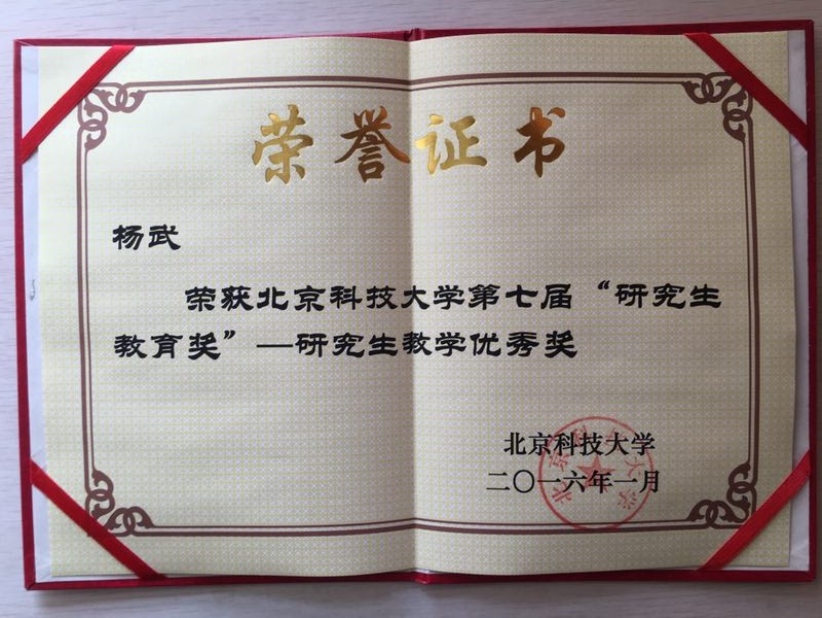 荣誉证书
杨武
荣获北京科技大学第七届“研究生
教育奖”—研究生教学优秀奖
北京科技大学
二〇一六年一月
北京科技大学